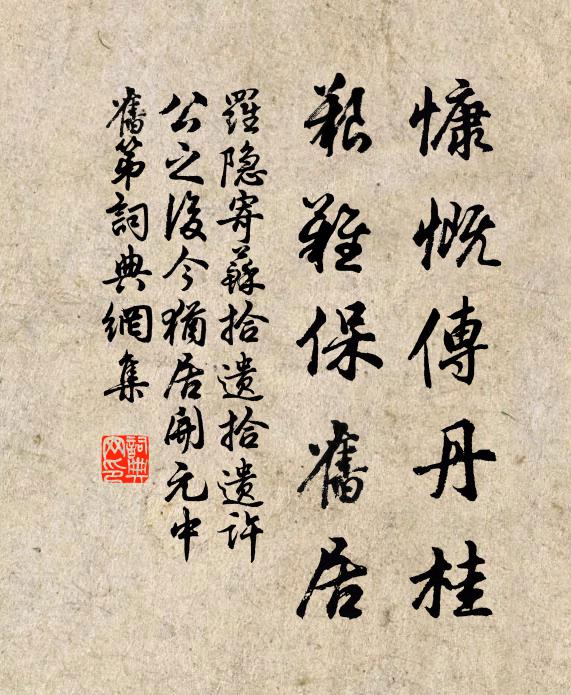 慷慨傳丹桂
艱難保舊居
羅隐寄蘇拾遺拾遺許
公之後今猶居開元中
舊第詞典網集
詞典網印